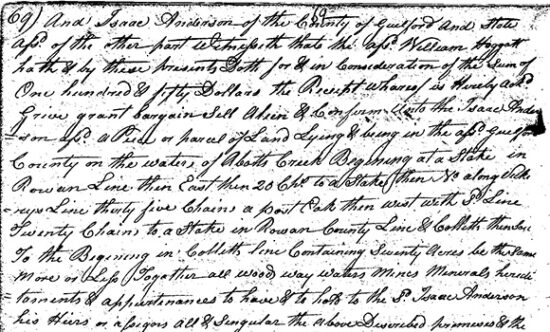 69) And Isaac Anderson of the County of Guilford And State
afsd. of the other part Witnesseth that the afsd. William Hoggatt
hath & by these presents Doth for & in Consideration of the Sum of
One hundred & fifty Dollars the Receipt Whareof is Hereby Ackd
Greve grant bargain Sell Alein & Conform Unto the Isaac Ander
=son afsd. a Peice or parcel of Land Lying & being in the afsd. Guilford
County on the waters of Abotts Creek Begening at a Stake in
Rowan Line then East then 20 Chs. to a Stake then No. along
=neys Line thirty five Chains a post Oak then west with Sd. Line
Twenty Chains to a Stake in Rowan County Line & Colletts then
To the Begening in Colletts line Containing Seventy Acres be the Same
More or Less Together all wood way waters Mines Minerals heredi
taments & appurtenances to have & to hold to the Sd. Isaac Anderson
his Hiers or assigons all & Singular the above Discribed premises & the